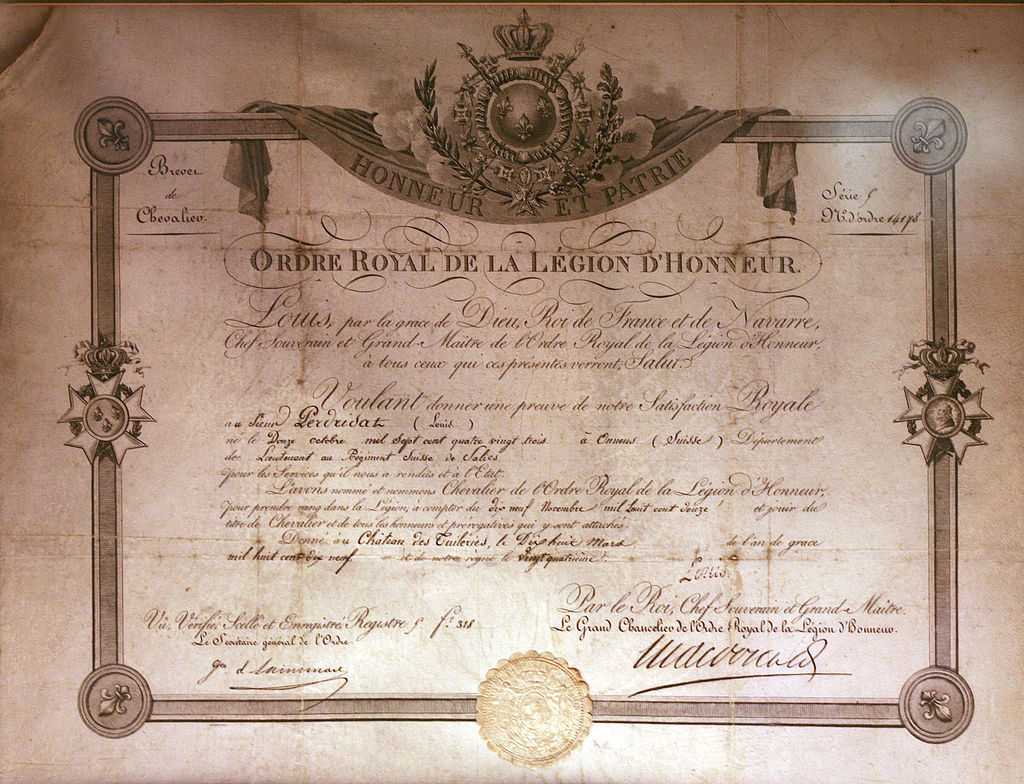 HONNEUR ET PATRIE
Brevet
de
Chevalier.
Série 5
N.º d'ordre 14198
ORDRE ROYAL DE LA LÉGION D'HONNEUR.
Louis, par la grace de Dieu, Roi de France et de Navarre,
Chef Souverain et Grand-Maître de l'Ordre Royal de la Légion d'Honneur,
à tous ceux qui ces présentes verront, Salut.
Voulant donner une preuve de notre Satisfaction Royale
au Sieur Perdrisat (Louis)
né le Douze octobre mil sept cent quatre vingt trois à (Suisse) Département
de Lieutenant au Régiment Suisse de Salis
pour les Services qu'il nous a rendus et à l'Etat.
L'avons nommé et nommons Chevalier de l'Ordre Royal de la Légion d'Honneur,
pour prendre rang dans la Légion, à compter du dix neuf Novembre mil huit cent douze et jouir du
titre de Chevalier et de tous les honneurs et prérogatives qui y sont attachés.
Donné au Château des Tuileries, le Dix huit Mars de l'an de grace
mil huit cent dix neuf et de notre règne le vingt quatrième.
Louis.
Par le Roi, Chef Souverain et Grand-Maître
Le Grand Chancelier de l'Ordre Royal de la Légion d'Honneur.
Macdonald
Vu, Vérifié, Scellé et Enregistré, Registre 5 f.º 318
Le Secrétaire général de l'Ordre